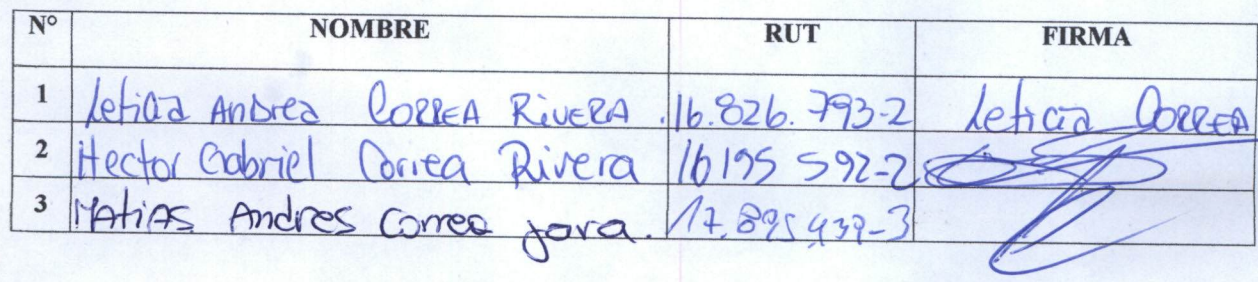 N° NOMBRE RUT FIRMA
1 Leticia Andrea CORREA RIVERA .16.826.793-2 Leticia CORREA
2 Hector Gabriel Correa Rivera 16195 592-2
3 MATIAS Andres Correa jara. 17.895,439-3